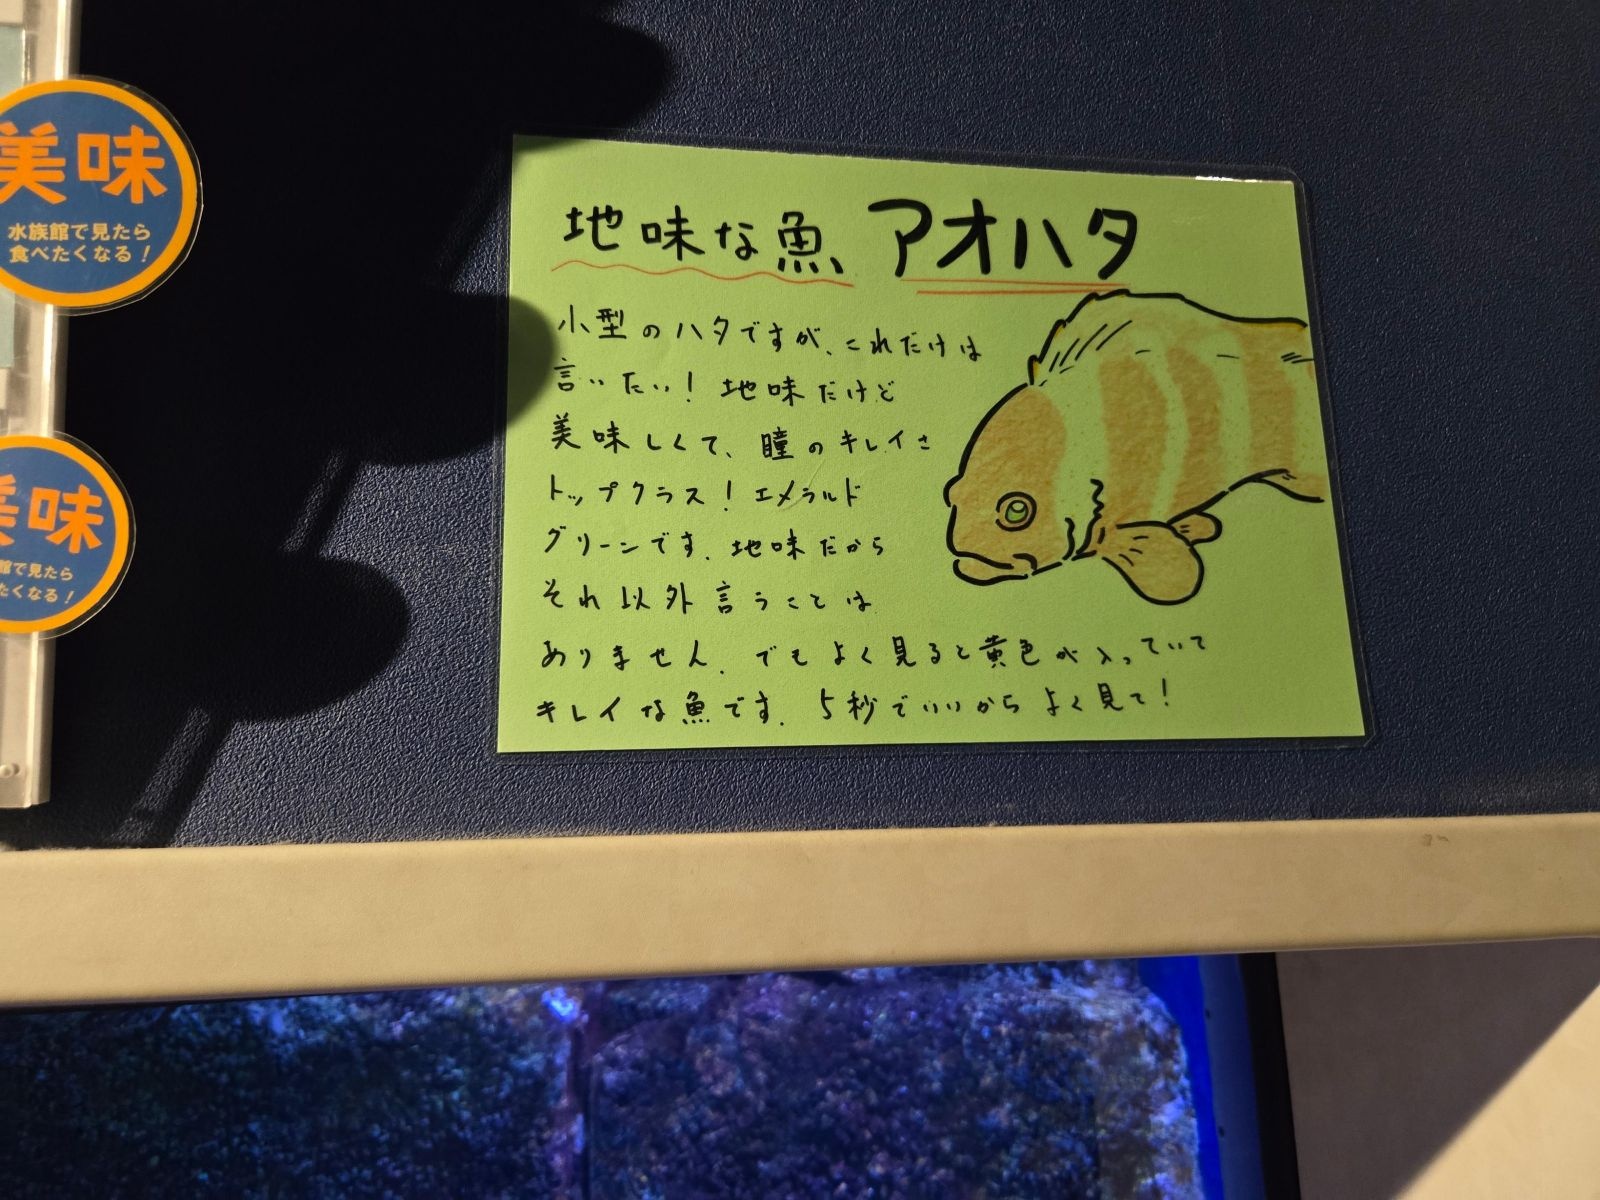 美味
水族館で見たら
食べたくなる！
美味
館で見たら
たくなる！
地味な魚 アオハタ
小型のハタですが、これだけは
言いたい！地味だけど
美味しくて、瞳のキレイさ
トップクラス！エメラルド
グリーンです。地味だから
それ以外言うことは
ありません。でもよく見ると黄色が入っていて
キレイな魚です。5秒でいいからよく見て！